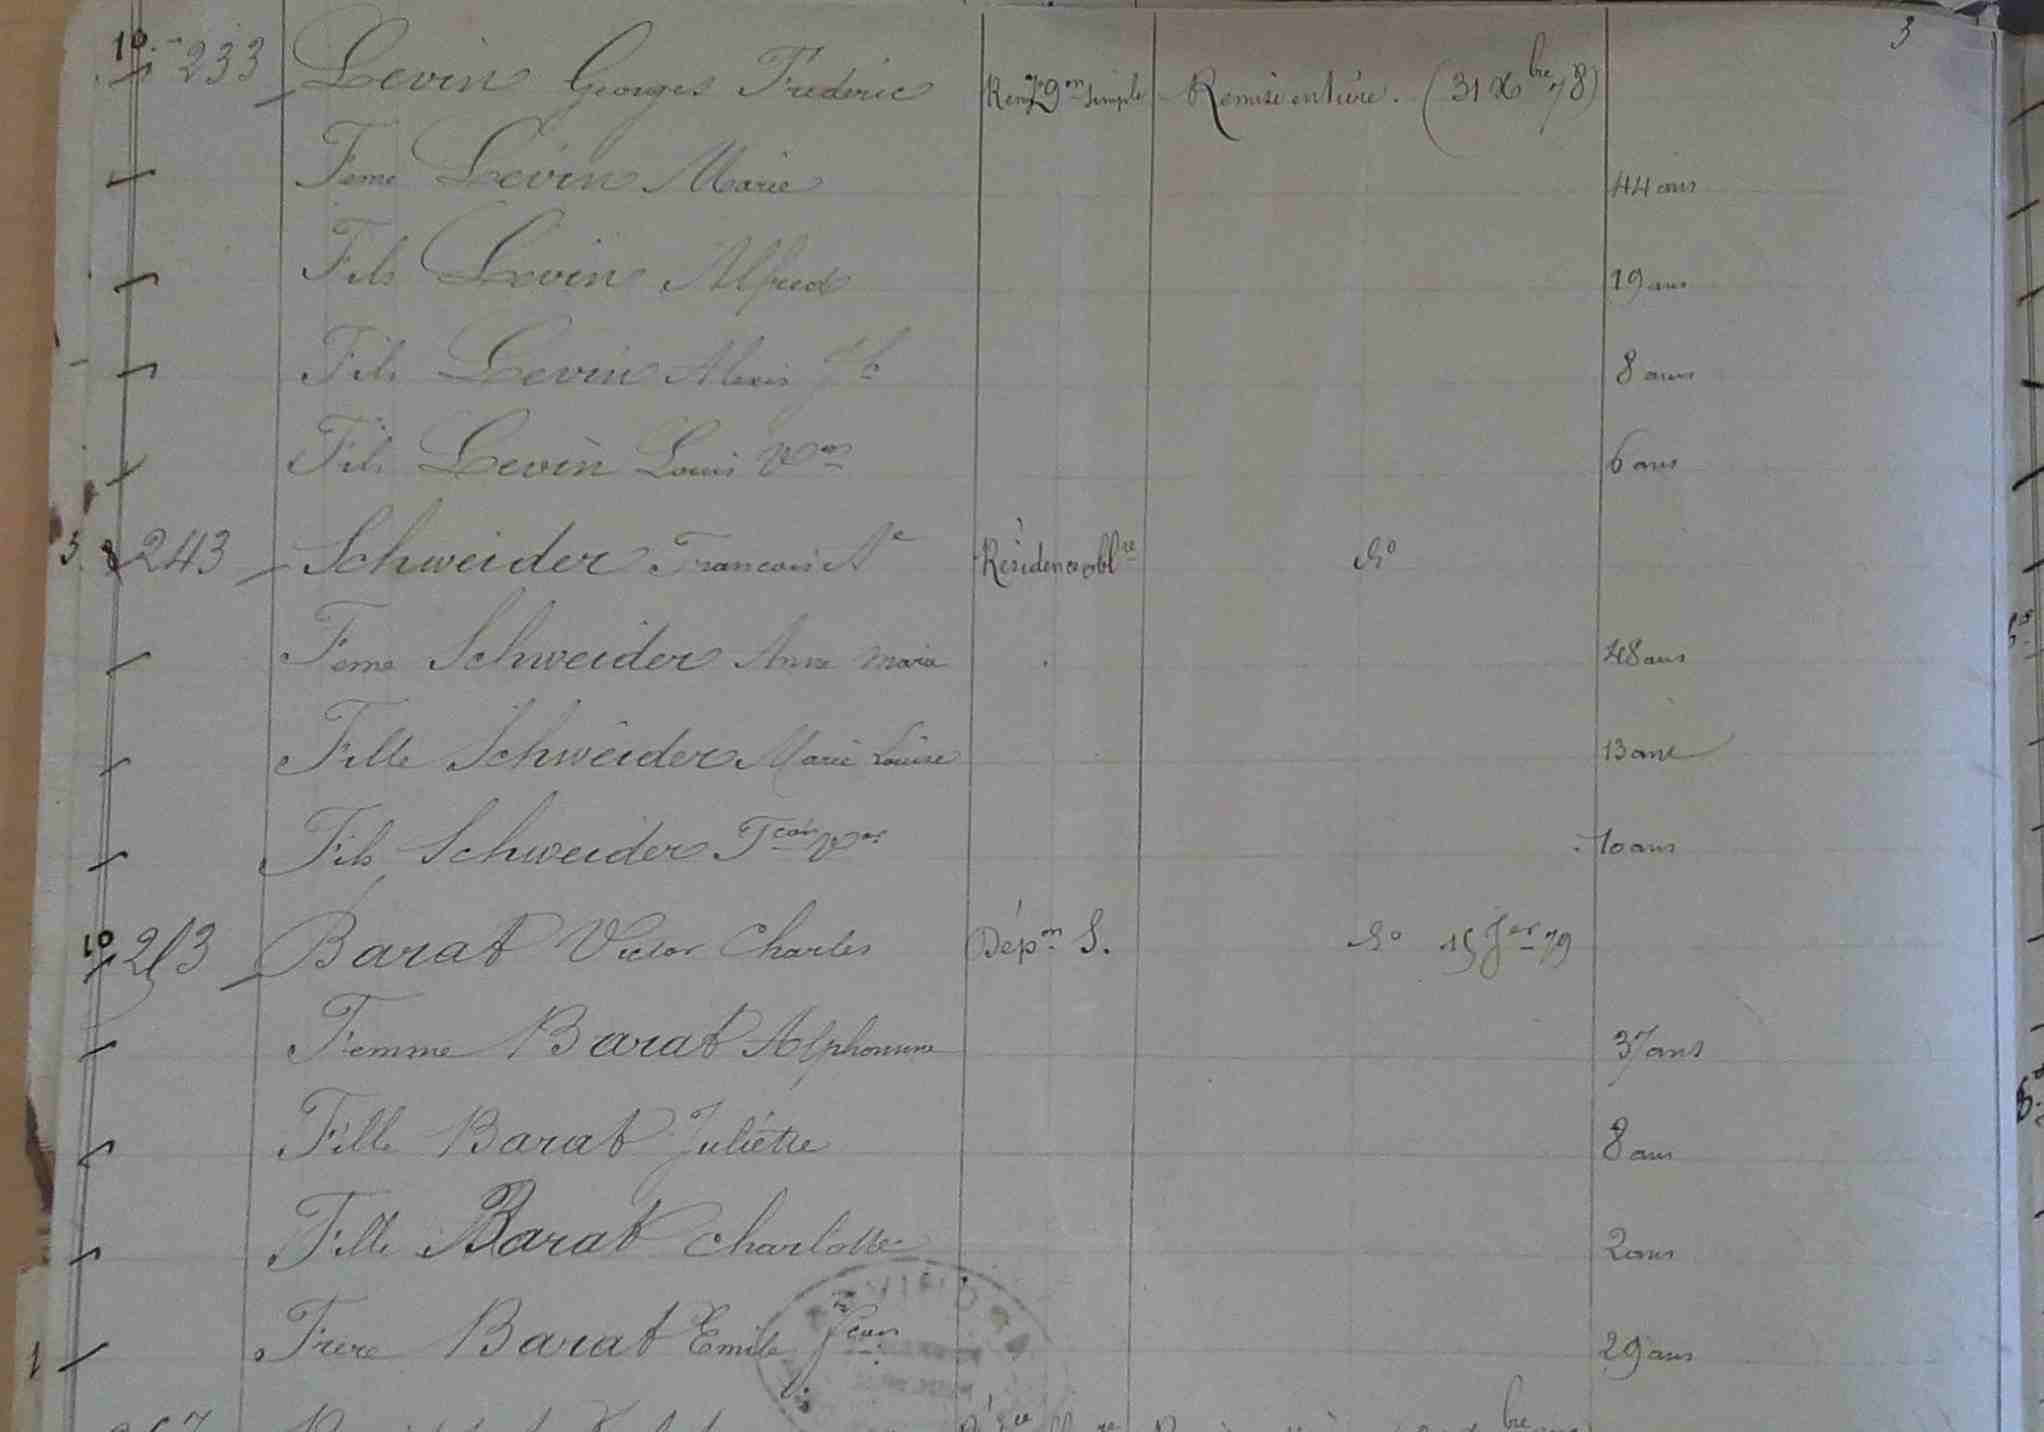 3
10 233 Levin Georges Frédéric simple Remise entière. (31 Xbre 78)
Feme Levin Marie 44 ans
Fils Levin Alfred 19 ans
Fils Levin Alexis Jh 8 ans
Fils Levin Louis Von 6 ans
243 Schweider Francois Ae Résidence oblre do
Feme Schweider Anne Marie 48 ans
Fille Schweider Marie Louise 13 ans
Fils Schweider Jean Vor 10 ans
10 253 Barat Victor Charles Dépon S. do 15 Jer 79
Femme Barat Alphonsine 37 ans
Fille Barat Juliette 8 ans
Fille Barat Charlotte 2 ans
1 Frere Barat Emile Jean 29 ans